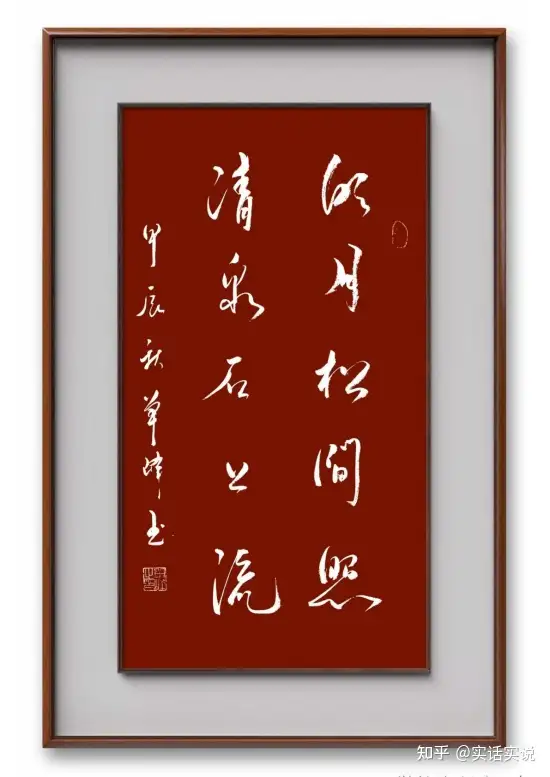 明月松澗照
清泉石上流
甲辰秋单峰书
知乎 @实话实说